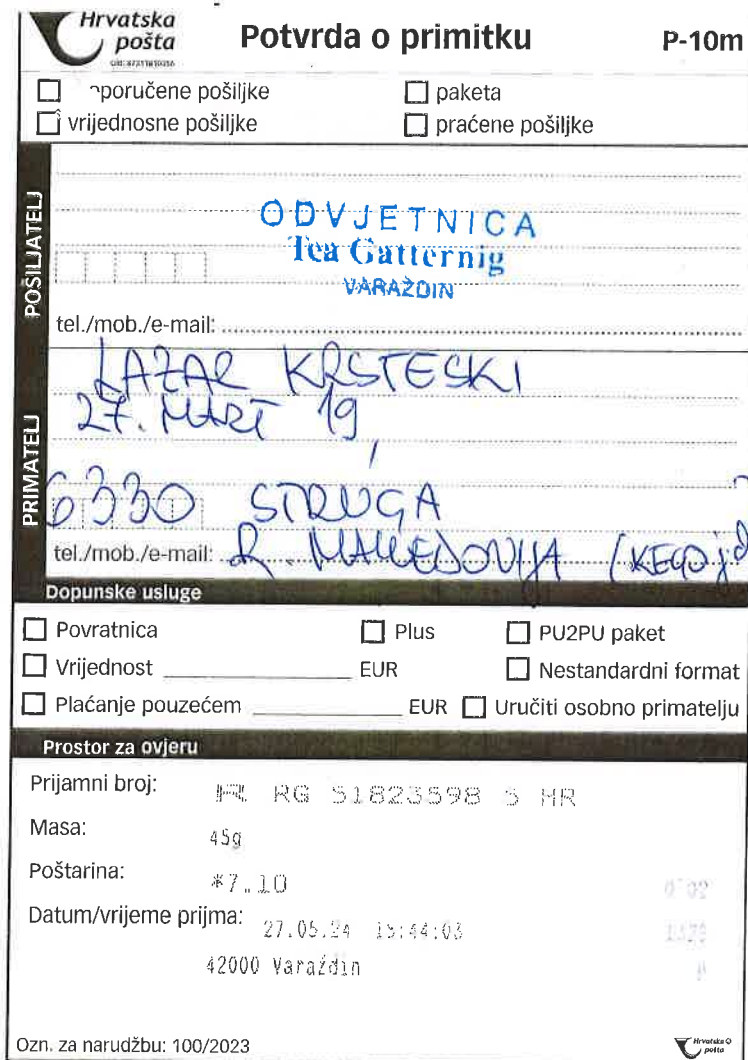 Hrvatska
pošta
Potvrda o primitku
P-10m
poručene pošiljke
paketa
vrijednosne pošiljke
praćene pošiljke
POŠILJATELJ
ODVJETNICA
Tea Gatternig
VARAŽDIN
tel./mob./e-mail:
PRIMATELJ
LAZAR KRSTESKI
27. MART 19,
6330 STRUGA
tel./mob./e-mail: R. MAKEDONIJA
Dopunske usluge
Povratnica
Plus
PU2PU paket
Vrijednost EUR
Nestandardni format
Plaćanje pouzećem EUR
Uručiti osobno primatelju
Prostor za ovjeru
Prijamni broj: R RG 51823598 5 HR
Masa: 45g
Poštarina: *7.10
Datum/vrijeme prijma: 27.05.24 15:44:03
42000 Varaždin
Ozn. za narudžbu: 100/2023
Hrvatska
pošta